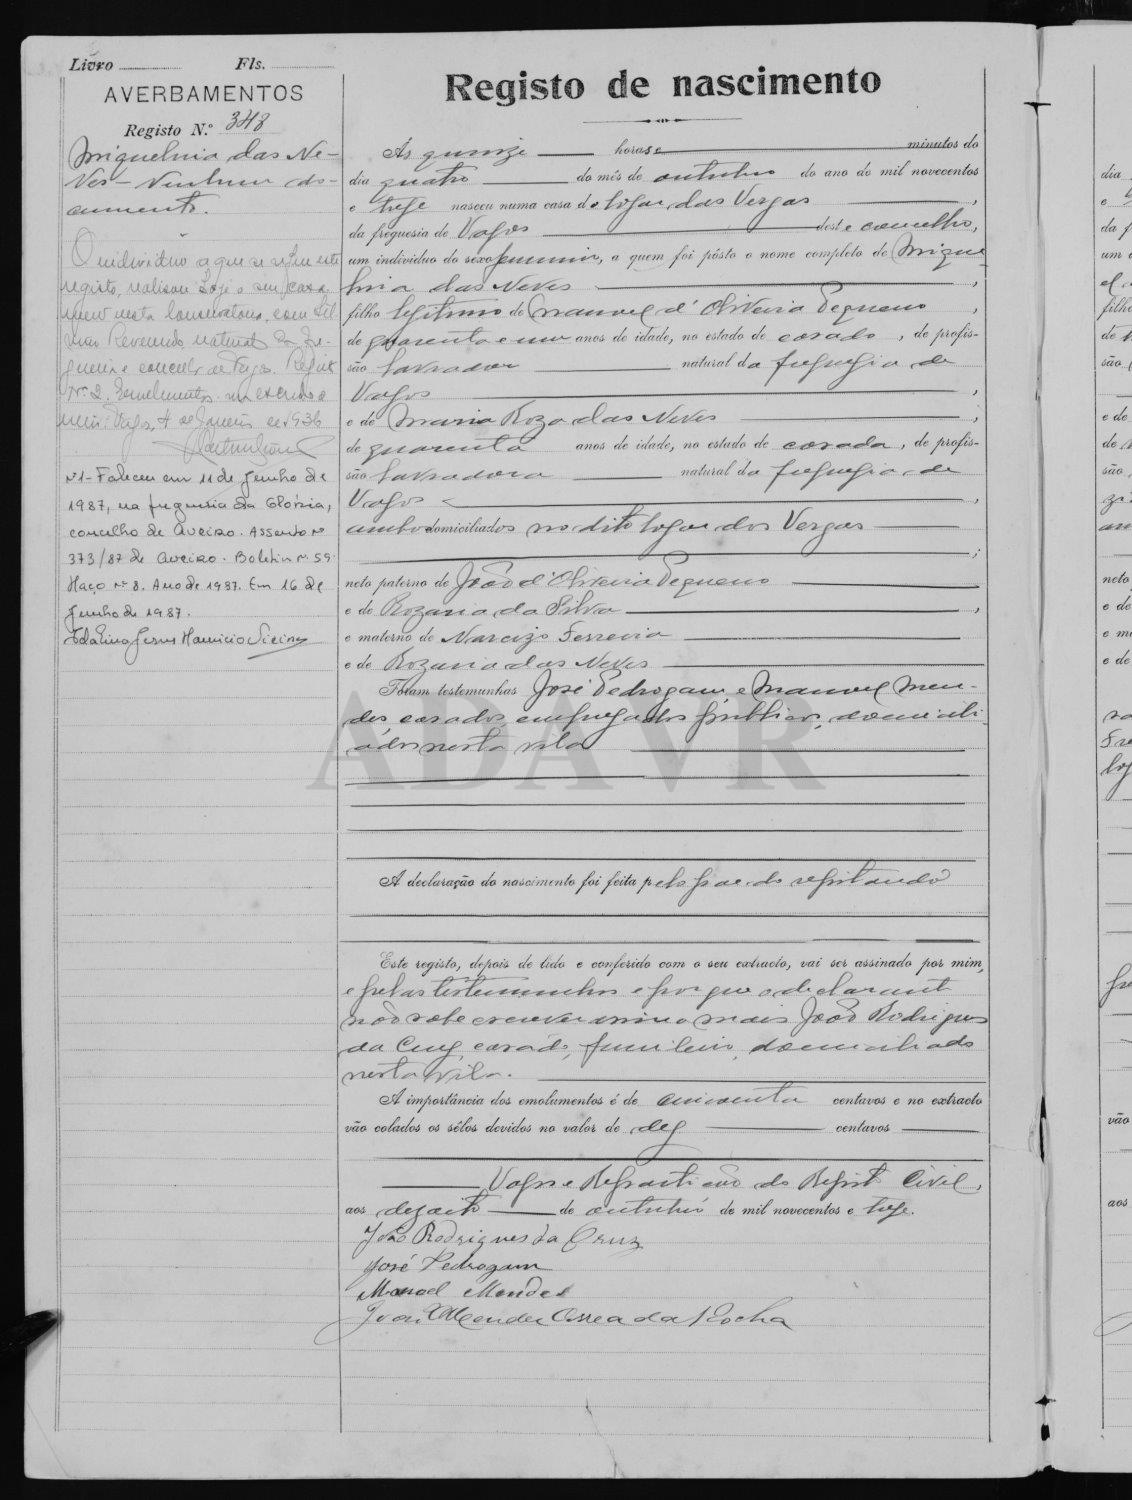 Livro Fls.
AVERBAMENTOS
Registo N.º 348
Miquelina das Ne-
ves - Nenhum do-
cumento.
O individuo a que se refere este
registo, realisou hoje o seu casa
mento nesta Conservatoria, com
Reverendo natural da fre-
guesia e concelho de Vagos. Registo
Nº 2. Emolumentos um escudo e
meio. Vagos, 4 de Janeiro de 1936
Nº1 - Faleceu em 11 de Junho de
1987, na freguesia da Glória,
concelho de Aveiro. Assento nº
373/87 de Aveiro. Boletim nº 59
Maço nº 8. Ano de 1987. Em 16 de
Junho de 1987.
Idalina Jesus Mauricio Vieira
Registo de nascimento
Ás quinze horas e minutos do
dia quatro do mês de outubro do ano de mil novecentos
e treze nasceu numa casa do logar das Vergas,
da freguesia de Vagos deste concelho,
um individuo do sexo feminino, a quem foi pôsto o nome completo de Mique
lina das Neves,
filho legitimo de Manuel d'Oliveira Pequeno,
de quarenta e um anos de idade, no estado de casado, de profis-
são lavrador natural da freguesia de
Vagos,
e de Maria Roza das Neves;
de quarenta anos de idade, no estado de casada, de profis-
são lavradora natural da freguesia de
Vagos,
ambos domiciliados no dito logar das Vergas
;
neto paterno de João d'Oliveira Pequeno
e de Rozaria da Silva,
e materno de Narcizo Ferreira
e de Rozaria das Neves
Foram testemunhas José Pedrogam e Manuel Men-
des casados, empregados publicos, domicili-
ados nesta vila
ADAVR
A declaração do nascimento foi feita pelo pae do registando
Este registo, depois de lido e conferido com o seu extracto, vai ser assinado por mim,
e pelas testemunhas e por que o declarante
não sabe escrever assina mais João Rodrigues
da Cruz, casado, funileiro, domiciliado
nesta vila.
A importância dos emolumentos é de cincoenta centavos e no extracto
vão colados os sêlos devidos no valor de dez centavos
Vagos e Repartição do Registo Civil,
aos dezoito de outubro de mil novecentos e treze.
João Rodrigues da Cruz
José Pedrogam
Manoel Mendes
João Mendes Correa da Rocha